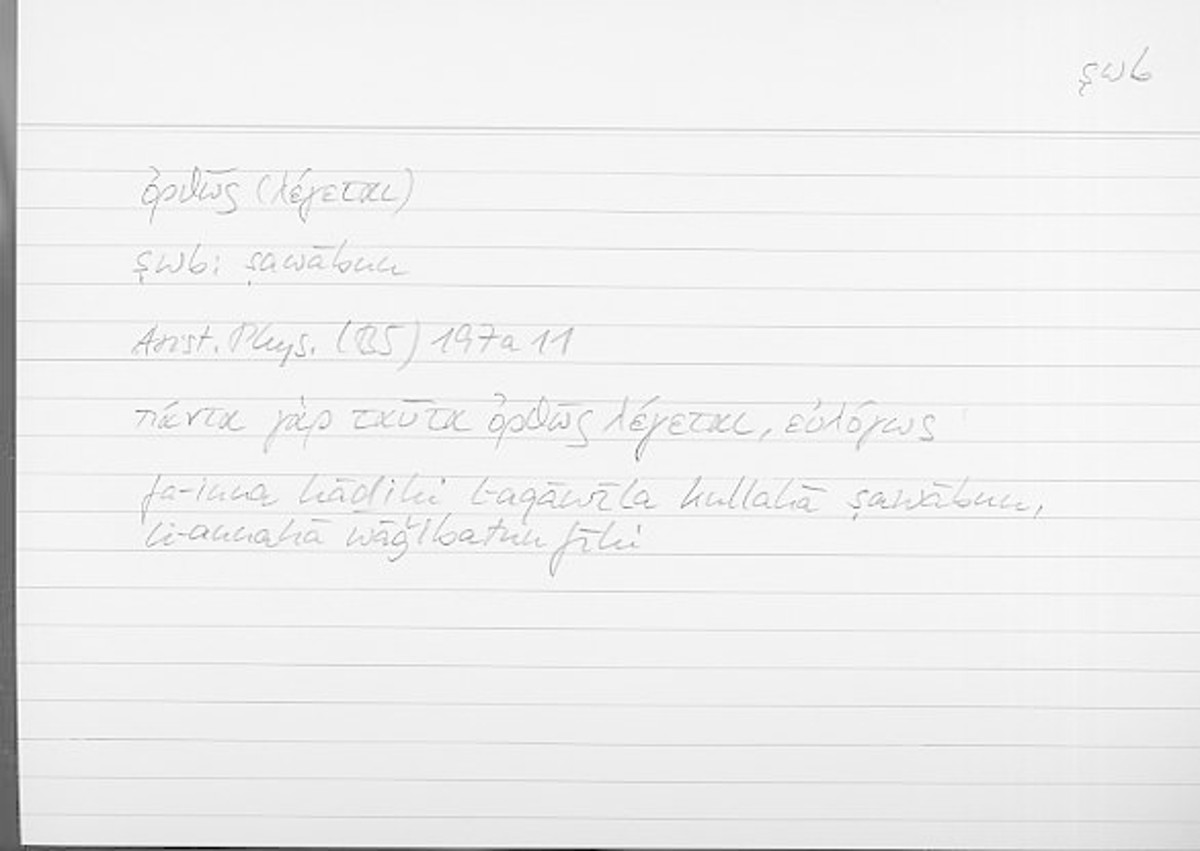 ṣwb
ὀρθῶς (λέγεται)
ṣwb: ṣawābun
Arist. Phys. (BS) 197a 11
πάντα γὰρ ταῦτα ὀρθῶς λέγεται, εὐλόγως
fa-inna hāḏihi l-aqāwīla kullahā ṣawābun,
li-annahā wāǧibatun fīhi